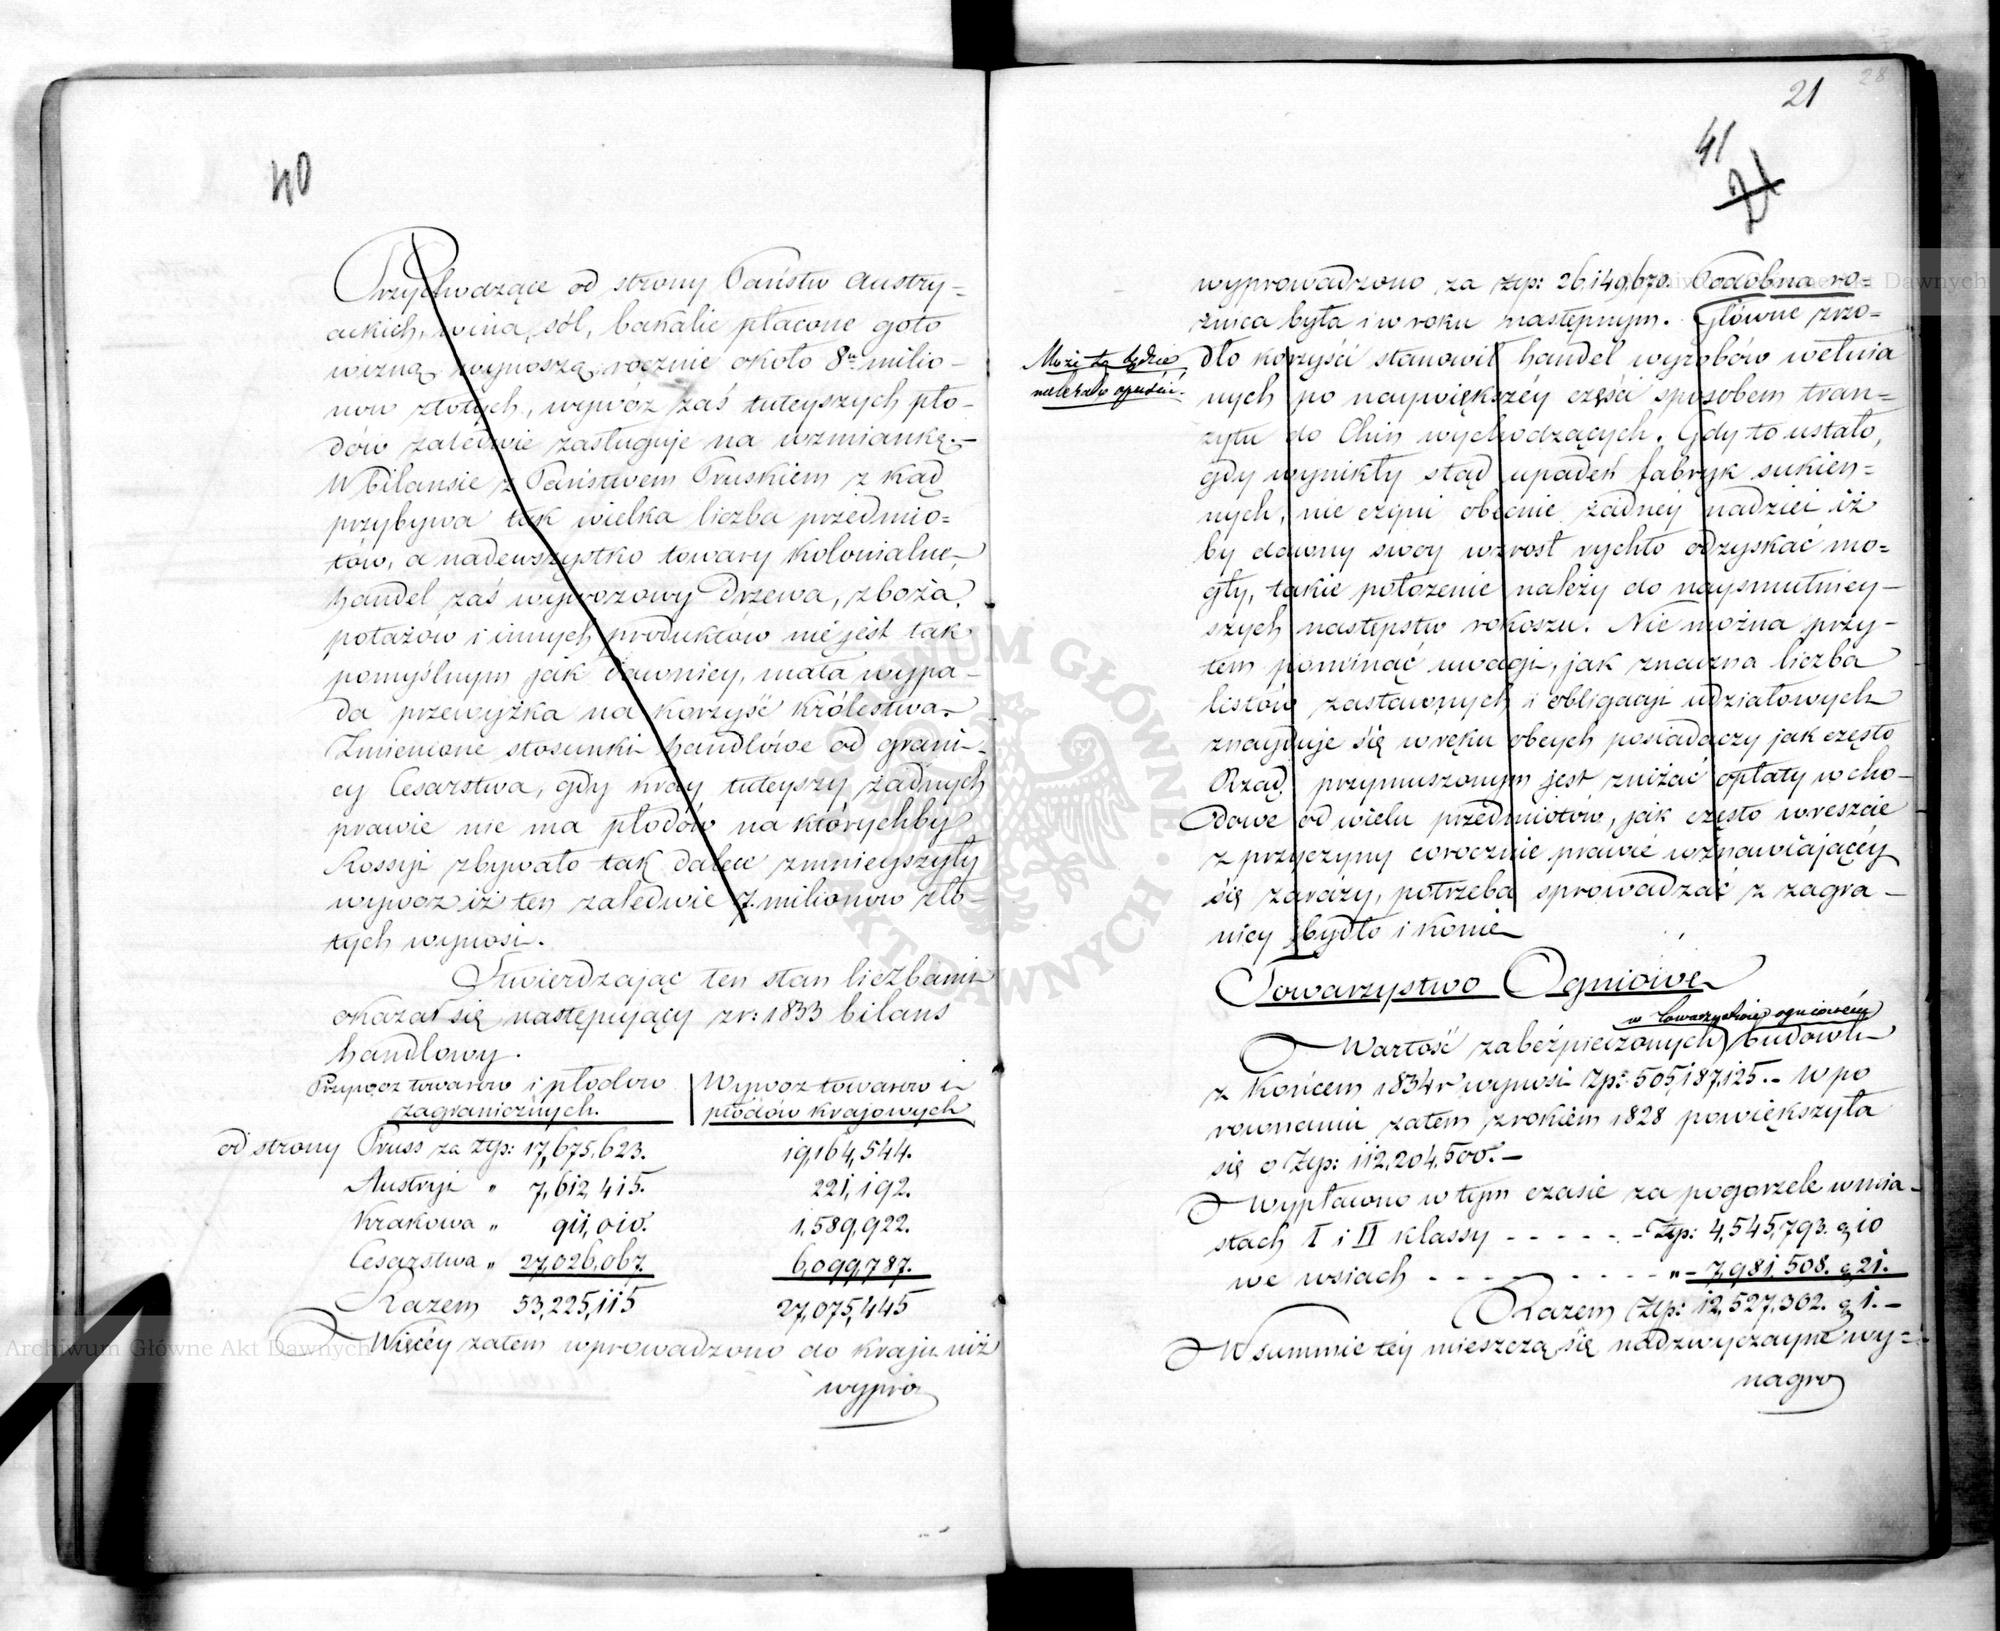 40
Przychodzące od strony Państw Austry-
ackich, wina, sól, bakalie płacone goto
wizną wynoszą rocznie około 8u milio-
now złotych, wywóz zaś tuteyszych pło-
dów zaledwie zasługuje na wzmiankę.-
W bilansie z Państwem Pruskiem z kąd
przybywa tak wielka liczba przedmio=
tów, a nadewszystko towary kolonialne,
handel zaś wywozowy drzewa, zboża,
potażów i innych produktów nie jest tak
pomyślnym jak dawniey, mała wypa-
da przewyżka na korzyść Królestwa.
Zmienione stosunki handlowe od grani-
cy Cesarstwa, gdy kray tuteyszy żadnych
prawie nie ma płodów na którychby
Rossyi zbywało tak dalece zmnieyszyły
wywoz iż ten zaledwie 7. milionow zło-
tych wynosi.
Stwierdzając ten stan liczbami
okazał się następujący z r: 1833 bilans
handlowy.
Przywoz towarow i płodow
zagranicznych.
Wywoz towarow i
płodów krajowych
od strony Pruss za złp: 17,675,623. 19,164,544.
Austryi " 7,612,415. 221,192.
Krakowa " 911,010. 1,589,922.
Cesarstwa " 27,026,067. 6,099,787.
Razem 53,225,115 27,075,445
Więcéy zatem wprowadzono do kraju niż
wypro
21
28
41
21
wyprowadzono za złp: 26,149,670. Podobna ro-
żnica była i w roku następnym. Główne zrzo-
Może to będzie
należało opuścić.
dło korzyści stanowił handel wyrobów wełnia
nych po naywiększéy części sposobem tran=
zytu do Chin wychodzących. Gdy to ustało,
gdy wynikły stąd upadek fabryk sukien=
nych, nie czyni obecnie żadnéy nadziei iż
by dawny swoy wzrost rychło odzyskać mo=
gły, takie położenie należy do naysmutniey-
szych następstw rokoszu. Nie można przy-
tem pominąć uwagi, jak znaczna liczba
listów zastawnych i obligacyi udziałowych
znayduje się w ręku obcych posiadaczy jak często
Rząd przymuszonym jest zniżać opłaty wcho-
dowe od wielu przedmiotów, jak często wreszcie
z przyczyny corocznie prawie wznawiającéy
się zarazy, potrzeba sprowadzać z zagra-
nicy bydło i konie
Towarzystwo Ogniowe
w Towarzystwie ogniowém
Wartość zabeżpieczonych budowli
z końcem 1834 r wynosi złp: 505,187,125.- W po
rownaniu zatem z rokiem 1828 powiększyła
się o złp: 112,204,500.-
Wypłacono w tym czasie za pogorzele w mia-
stach I i II klassy - - - - - - złp: 4,545,793. g 10
we wsiach - - - - - - - - - - " - 7,981,508. g 21.
Razem złp: 12,527,302. g 1.-
W summie téy mieszczą się nadzwyczayne wy-
nagro
Archiwum Główne Akt Dawnych
Archiwum Główne Akt Dawnych
ARCHIWUM GŁÓWNE AKT DAWNYCH